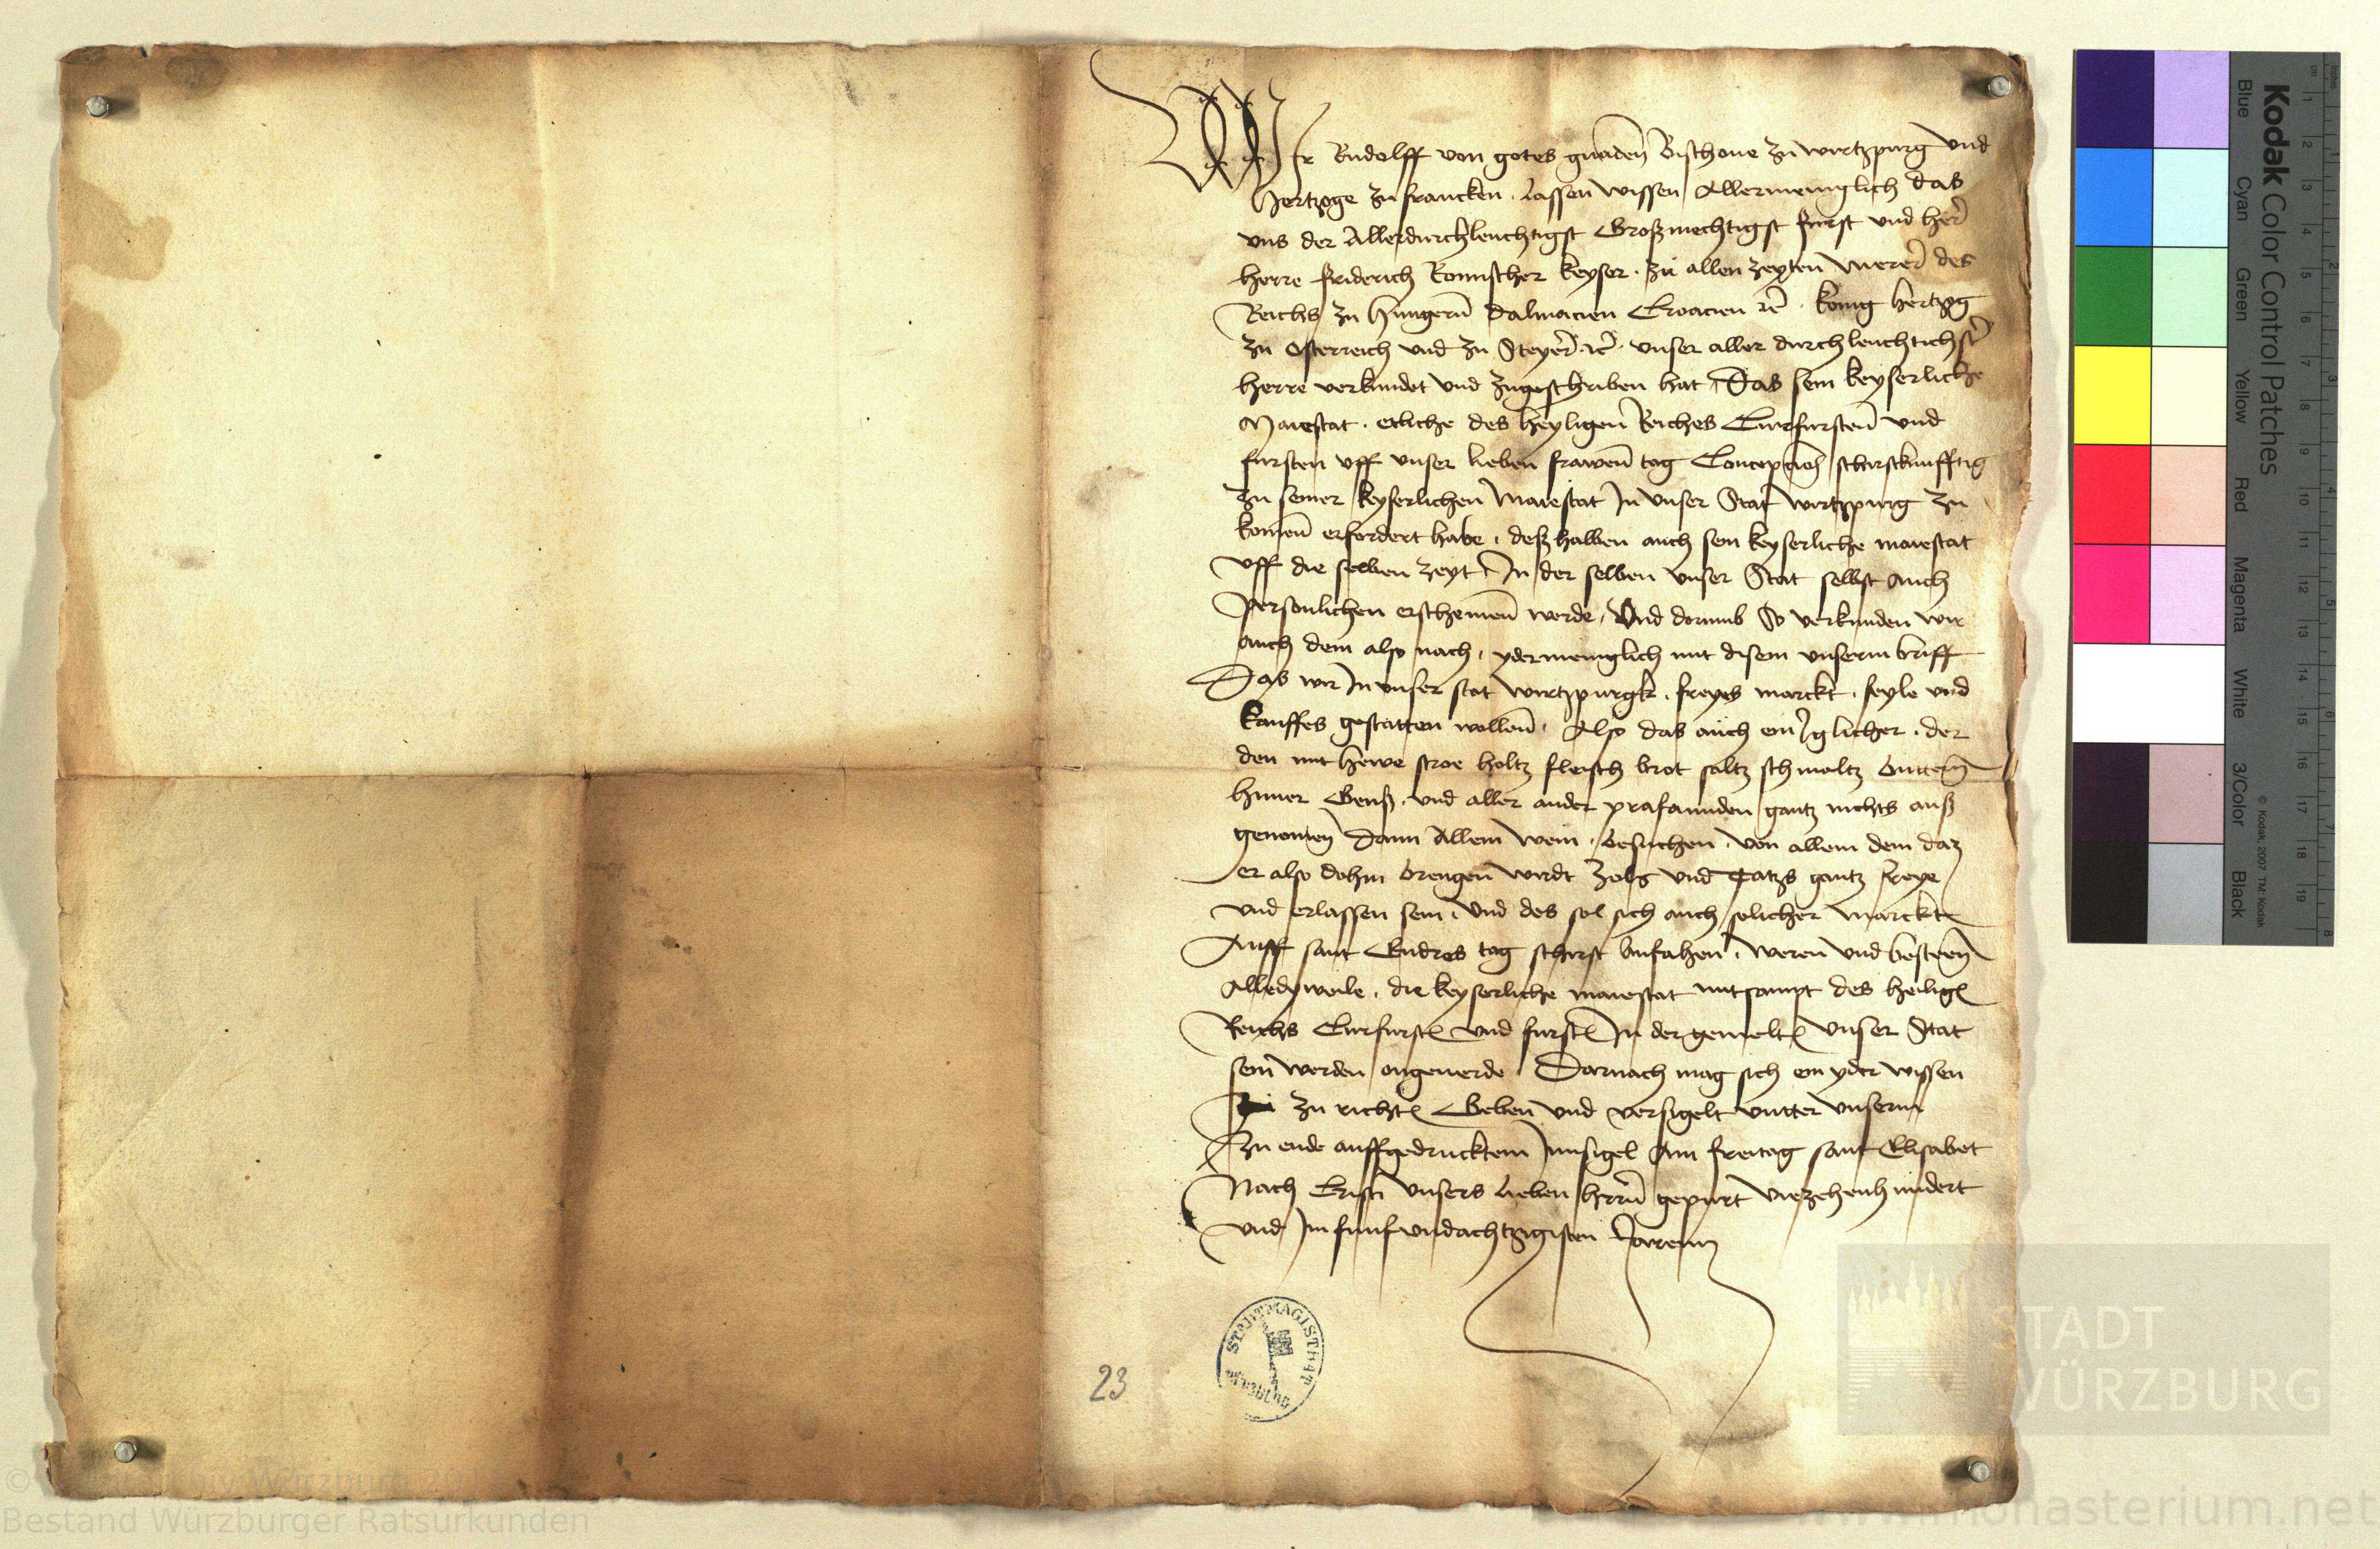 Wir Rudolff von gotes gnaden Bischoue zu wurtzpurg vnd
Hertzoge zu francken . lassen wissen Allermeniglich das
vns der Allerdurchleuchtigst Großmechtigst furst vnd her
herre friderich Romischer keyser . zu allen zeyten merer des
Reichs zu Hungern dalmacien Croacien rc . konig hertzog
zu Osterreich vnd zu Steyer . rc . vnser aller durchleuchtichst
herre verkundet vnd zugeschriben hat / Das sein keyserliche
Maiestat . etliche des heyligen Reiches Curfursten vnd
fursten vff vnser lieben frawen tag schirstkunfftig
zu seiner keyserlichen Maiestat In vnser Stat wurtzpurg zu
komen erfordert habe . deßhalben auch sein keyserliche maiestat
vff die selben zeyt In der selben vnser Stat selbst auch
personlichen erscheinen werde / Vnd dorumb So verkunden wir
auch dem also nach / ydermeniglich mit disem vnserm briff
Das wir In vnser stat wurtzpurgk . freyes marckt . feyls vnd
kauffes gestatten wollen / Also das auch ein Iglicher . der
den mit hewe stroe holtz fleisch brot saltz schmaltz buttern
huner Genß . vnd aller ander gantz nichts auß
genomen Dann Allein wein . besuchen . von allem dem daz
er also dohin brengen wirdt Zols vnd gantz freye
vnd erlassen sein . Vnd des sol sich auch solicher marckt
Auff sant Endres tag schirst anfahen . weren vnd besteen
Alledyweile . die keyserliche maiestat mitsampt des heilige
Reichs Curfurste vnd furste In der gemelte vnser Stat
sein werden ongeuerde / Darnach mag sich ein yder wissen
zu richte Geben vnd versigelt vntter vnserm
Zu ende auffgedrucktem Innsigel Am freitag sant Elisabet
Nach Cristi vnsers lieben hern gepurt viezehenhundert
vnd Im funfvndachtzigisten Jarenn
23
STADTMAGISTRAT
WÜRZBURG
STADT
WÜRZBURG
Bestand Würzburger Ratsurkunden
www.monasterium.net
Kodak Color Control Patches
© Kodak, 2007 TM: Kodak
Blue Cyan Green Yellow Red Magenta White 3/Color Black
cm 1 2 3 4 5 6 7 8 9 10 11 12 13 14 15 16 17 18 19
Inches 1 2 3 4 5 6 7 8